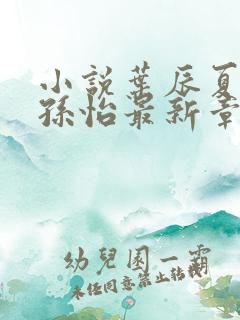 小說葉辰夏
孫怡最新章
幼兒園一霸
未任同意禁止轉載